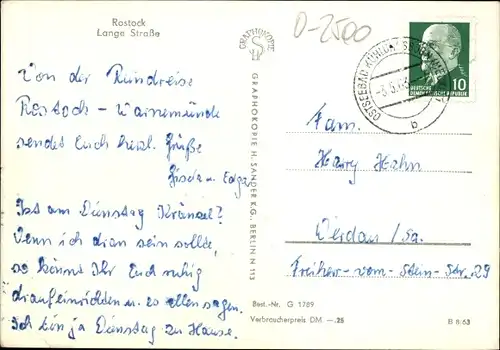 Rostock
Lange Straße
O-2500
Von der Rundreise
Rostock – Warnemünde
sendet Euch herzl. Grüße
Gisela u. Edgar
Ist am Dienstag Kränzel?
Wenn ich dran sein sollte,
so könnt Ihr Euch ruhig
drauf einrichten u. es allen sagen.
Ich bin ja Dienstag zu Hause.
GRAPHOKOPIE
GRAPHOKOPIE H. SANDER K.G. BERLIN N 113
OSTSEEBAD KÜHLUNGSBORN
b
DEUTSCHE
DEMOKRATISCHE REPUBLIK
10
Fam.
Harry Hahn
Werdau / Sa.
Freiherr-vom-Stein-Str. 29
Best.-Nr. G 1789
Verbraucherpreis DM —.25
B 8/63